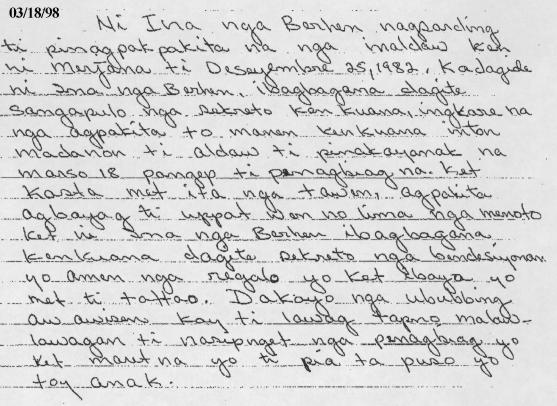 03/18/98
Ni Ina nga Berhen nagsarding
ti pinagpakpakita na nga inaldaw ken
ni Merjana ti Deseyembre 25, 1982. Kadagide
ni Ina nga Berhen, ibagbagana dagite
Sangapulo nga sekreto ken kuana, ingkare na
nga agpakita to manen kenkuana inton
madanon ti aldaw ti pinakayanak na
marso 18 pangep ti penagbiag na. Ket
Kasta met ita nga tawen, agpakita
agbayag ti uppat won no lima nga menoto
ket ni Ina nga Berhen ibagbagana
kenkuana dagite sekreto nga bendesiyonan
yo amen nga regalo yo ket ebaga yo
met ti tattao. Dakayo nga ububbing
aw awisen kay ti lawag tapno malaw-
lawagan ti nasipnget nga penagbiag yo
ket maut na yo ti pia ta puso yo
toy anak.